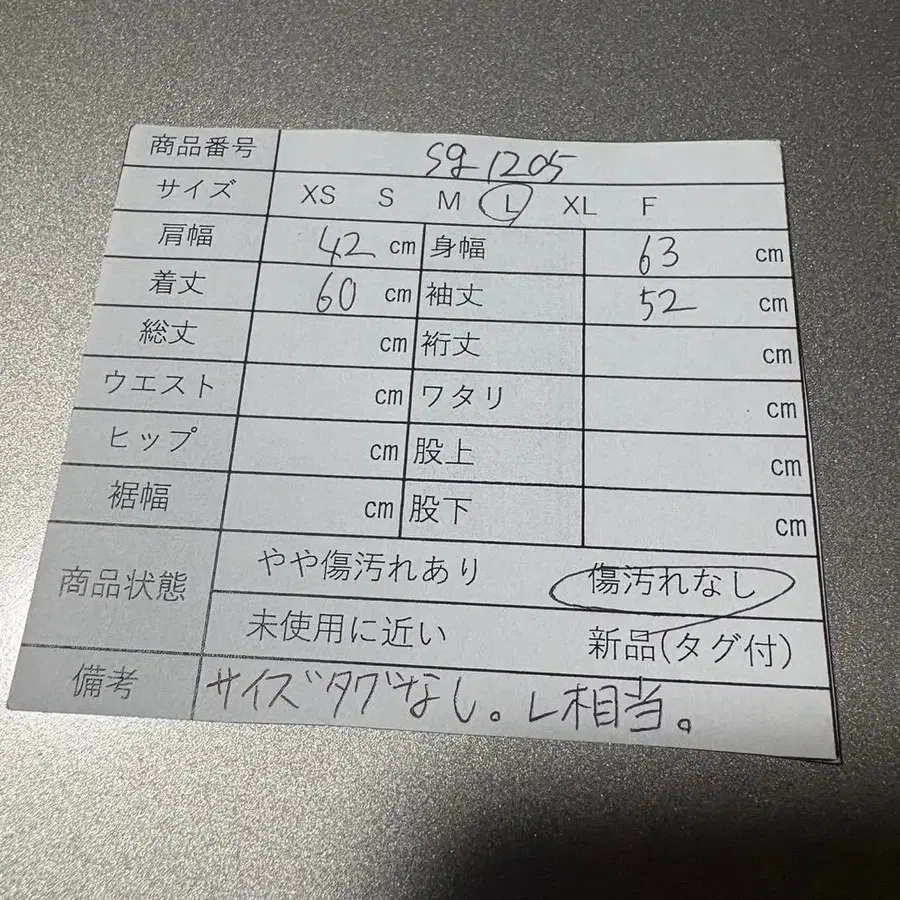 商品番号 sg1205
サイズ XS S M L XL F
肩幅 42 cm 身幅 63 cm
着丈 60 cm 袖丈 52 cm
総丈 cm 裄丈 cm
ウエスト cm ワタリ cm
ヒップ cm 股上 cm
裾幅 cm 股下 cm
商品状態 やや傷汚れあり 傷汚れなし
未使用に近い 新品(タグ付)
備考 サイズタグなし。L相当。